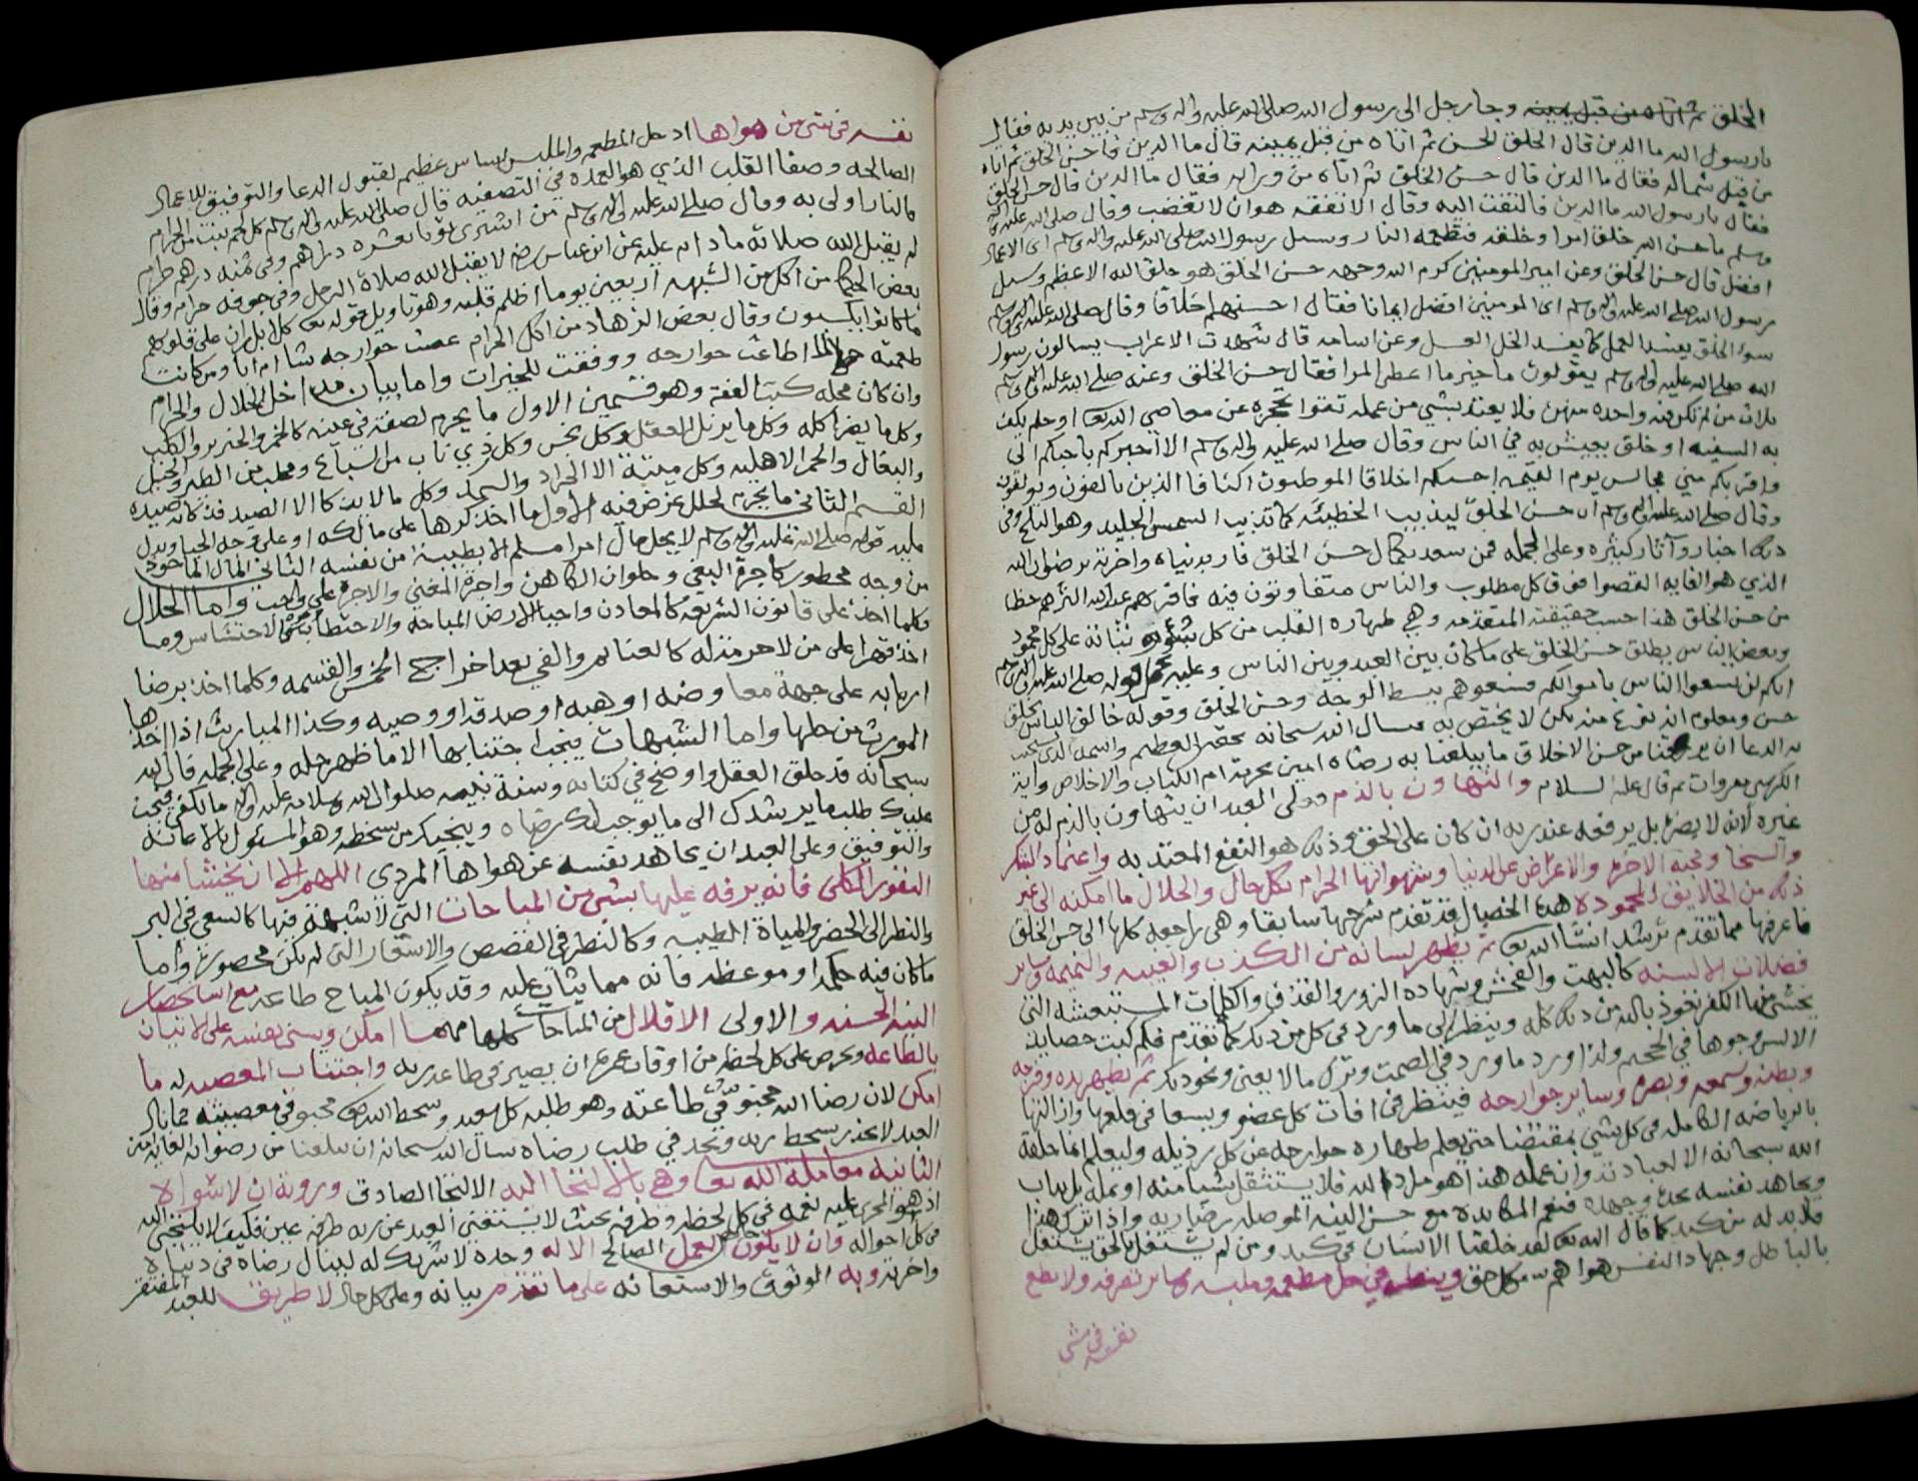 الخلق ثم اتاه من قبل يمينه وجا رجل الى رسول الله صلى الله عليه واله وسلم من بين يديه فقال
يا رسول الله ما الدين قال الخلق الحسن ثم اتاه من قبل يمينه قال ما الدين قال حسن الخلق ثم اتاه
من قبل شماله فقال ما الدين قال حسن الخلق ثم اتاه من ورائه فقال ما الدين قال حسن الخلق
فقال يا رسول الله ما الدين فالتفت اليه وقال الا تفقه هو ان لا تغضب وقال صلى الله عليه واله
وسلم ما حسن الله خلق امرا وخلقه فتطعمه النار وسيل رسول الله صلى الله عليه واله وسلم اى الاعمال
افضل قال حسن الخلق وعن امير المومنين كرم الله وجهه حسن الخلق هو خلق الله الاعظم وسيل
رسول الله صلى الله عليه واله وسلم اى المومنين افضل ايمانا فقال احسنهم اخلاقا وقال صلى الله عليه واله وسلم
سوء الخلق يفسد العمل كما يفسد الخل العسل وعن اسامه قال شهدت الاعراب يسالون رسول
الله صلى الله عليه واله وسلم يقولون ما خير ما اعطى المرا فقال حسن الخلق وعنه صلى الله عليه واله وسلم
ثلاث من لم تكن فيه واحده منهن فلا يعتد بشي من عمله تقوا تحجزه عن معاصي الله تعا او حلم يكف
به السفيه او خلق يعيش به في الناس وقال صلى الله عليه واله وسلم الا اخبركم باحبكم الى
واقربكم مني مجالس يوم القيمه احسنكم اخلاقا الموطئون اكنافا الذين يالفون ويولفون
وقال صلى الله عليه واله وسلم ان حسن الخلق ليذيب الخطيئه كما تذيب الشمس الجليد وهو الثلج وفي
ذلك اخبار وآثار كثيره وعلى الجمله فمن سعد بكمال حسن الخلق فاز بدنياه واخرته برضوان الله
الذي هو الغايه القصوا فوق كل مطلوب والناس متفاوتون فيه فاقربهم عند الله اكثرهم حظا
من حسن الخلق هذا حسب حقيقته المتقدمه وهي طهاره القلب من كل نباته على كل محمود
وبعض الناس يطلق حسن الخلق على ما كان بين العبد وبين الناس وعليه قوله صلى الله عليه واله وسلم
انكم لن تسعوا الناس باموالكم فسعوهم ببسط الوجه وحسن الخلق وقوله خالق الناس بخلق
حسن ومعلوم انه نوع منه لكن لا يختص به نسال الله سبحانه بحقه العظيم واسمه الذي يجيب
به الدعا ان يرزقنا من حسن الاخلاق ما يبلغنا به رضاه امين بحرمة ام الكتاب والاخلاص واية
الكرسي مروات ثم قال عليه السلام والتهاون بالذم وعلى العبد ان يتهاون بالذم له من
غيره لانه لا يضر بل يرفعه عند ربه ان كان على الحق وذلك هو النفع المعتد به واعتماد الشكر
والسخا ومحبه الاخره والاعراض عن الدنيا وشهواتها الحرام بكل حال والحلال ما امكنه الى غير
ذلك من الخلايق المحموده هذه الخصال قد تقدم شرحها سابقا وهى راجعه كلها الى حسن الخلق
فاعرفها مما تقدم ترشد انشا الله تعا ثم يطهر لسانه من الكذب والغيبه والنميمه وساير
فضلات الالسنه كالبهت والفحش وشهاده الزور والقذف والكلمات المستبعشه التي
يخشى منها الكفر نعوذ بالله من ذلك كله وينظر الى ما ورد في كل من ذلك كما تقدم فلم كبت حصايد
الالسن وجوها في الجحيم ولذا ورد ما ورد في الصمت وترك ما لا يعني ونحو ذلك ثم تطهير يده وفرجه
وبطنه وسمعه وبصره وساير جوارحه فينظر في افات كل عضو ويسعا في قلعها وازالتها
بالرياضه الكامله في كل شي بمقتضا حتى يعلم طهاره جوارحه عن كل رذيله وليعلم انما خلقه
الله سبحانه الا لعبادته وان عمله هذا هو مراد الله فلا يستثقل شيا منه او يمله بل يداب
ويجاهد نفسه بجده وجهده فنعم المكابده مع حسن النيه الموصله رضا ربه واذا ترك هذا
فلا بد له من كبد كما قال الله تعا لقد خلقنا الانسان في كبد ومن لم يشتغل بالحق يشتغل
بالباطل وجهاد النفس هواهم كل حق وينظر في حل مطعمه وملبسه وساير تصرفه ولا يطع
نفسه في شي
نفسه في شي من هواها اذ حل المطعم والملبس اساس عظيم لقبول الدعا والتوفيق للاعمال
الصالحه وصفا القلب الذي هو العمده في التصفيه قال صلى الله عليه واله وسلم كل لحم نبت من الحرام
فالنار اولى به وقال صلى الله عليه واله وسلم من اشترى ثوبا بعشره دراهم وفي ثمنه درهم حرام
لم يقبل الله صلاته ما دام عليه عن ابن عباس رضي لا يقبل الله صلاة الرجل وفي جوفه حرام وقال
بعض الحكما من اكل من الشبهه اربعين يوما اظلم قلبه وهو تاويل قوله تعا كلا بل ران على قلوبهم
ما كانوا يكسبون وقال بعض الزهاد من اكل الحرام عصت جوارحه شا ام ابا ومن كانت
طعمته حلالا اطاعت جوارحه ووفقت للخيرات واما بيان مداخل الحلال والحرام
وان كان محله كتب الفقه وهو قسمين الاول ما يحرم لصفته في عينه كالخمر والخنزير والكلب
وكل ما يضر اكله وكل ما يزيل العقل وكل نجس وكل ذي ناب من السباع ومخلب من الطير والخيل
والبغال والحمر الاهليه وكل ميتة الا الجراد والسمك وكل ما لا يذكا الا الصيد فذكاته صيده
القسم الثاني ما يحرم لخلل عرض فيه الاول ما اخذ كرها على مالكه او على وجه الحيا ويدل
عليه قوله صلى الله عليه واله وسلم لا يحل مال امرا مسلم الا بطيبة من نفسه الثاني المال الماخوذ
من وجه محظور كاجرة البغي وحلوان الكاهن واجرة المغني والاجرة على واجب واما الحلال
فكلما اخذ على قانون الشريعه كالمعادن واحيا الارض المباحه والاحتطاب والاحتشاش وما
اخذ قهرا على من لا حرمه له كالغنايم والفي بعد اخراج الخمس والقسمه وكلما اخذ برضا
اربابه على جهة معاوضه او هبه او صدقه او وصيه وكذا الميراث اذا اخذها
المورث من حلها واما الشبهات فيجب اجتنابها الا ما ظهر حله وعلى الجمله فان الله
سبحانه قد خلق العقل واوضح في كتابه وسنة نبيه صلوات الله وسلامه عليه واله ما يكفي فيجب
عليك طلب ما يرشدك الى ما يوجب لك رضاه وينجيك من سخطه وهو المسئول بالاعانه
والتوفيق وعلى العبد ان يجاهد نفسه عن هواها المردي اللهم الا ان يخشا منها
النفور الكلى فانه يرفه عليها بشي من المباحات التي لا شبهة فيها كالسعي في البر
والنظر الى الخضر والمياة الطيبه وكالنظر في القصص والاشعار التى لم تكن محصورة واما
ما كان فيه حكمه او موعظه فانه مما يثاب عليه وقد يكون المباح طاعه مع استحضار
النيه الحسنه والاولى الاقلال من المباحات كلها مهما امكن ويسني نفسه على الاتيان
بالطاعه ويحرص على كل لحظه من اوقات عمره ان يصير في طاعه ربه واجتناب المعصيه له ما
امكن لان رضا الله مخبو في طاعته وهو طلبه كل سعيد وسخط الله تعا مخبو في معصيته فما بال
العبد لا يحذر سخط ربه ويجد في طلب رضاه نسال الله سبحانه ان يبلغنا من رضوانه الغايه امين
الثانيه معاملة الله تعا وهي بالالتجا اليه الالتجا الصادق وروية ان لا سواه
اذ هو المجرى عليه نعمه في كل لحظه وطرفه بحيث لا يستغني العبد عن ربه طرفه عين فكيف لا يلتجي اليه
في كل احواله وان لا يكون العمل الصالح الا له وحده لا شريك له لينال رضاه في دنياه
واخرته وبه الوثوق والاستعانه على ما تقدم بيانه وعلى كل حال لا طريق للعبد المفتقر